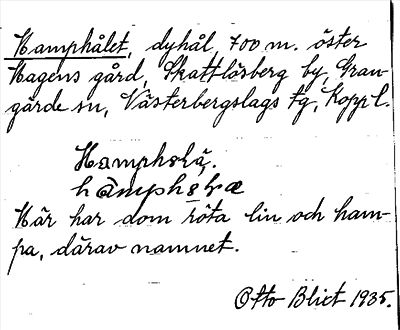 Hamphålet, dyhål, 700 m. öster
Hagens gård, Skattlösberg by, Gran-
gärde sn, Västerbergslags tg, Kopp l.
Hamphολä.
Här har dom röta lin och ham-
pa, därav namnet.
Otto Blixt 1935.